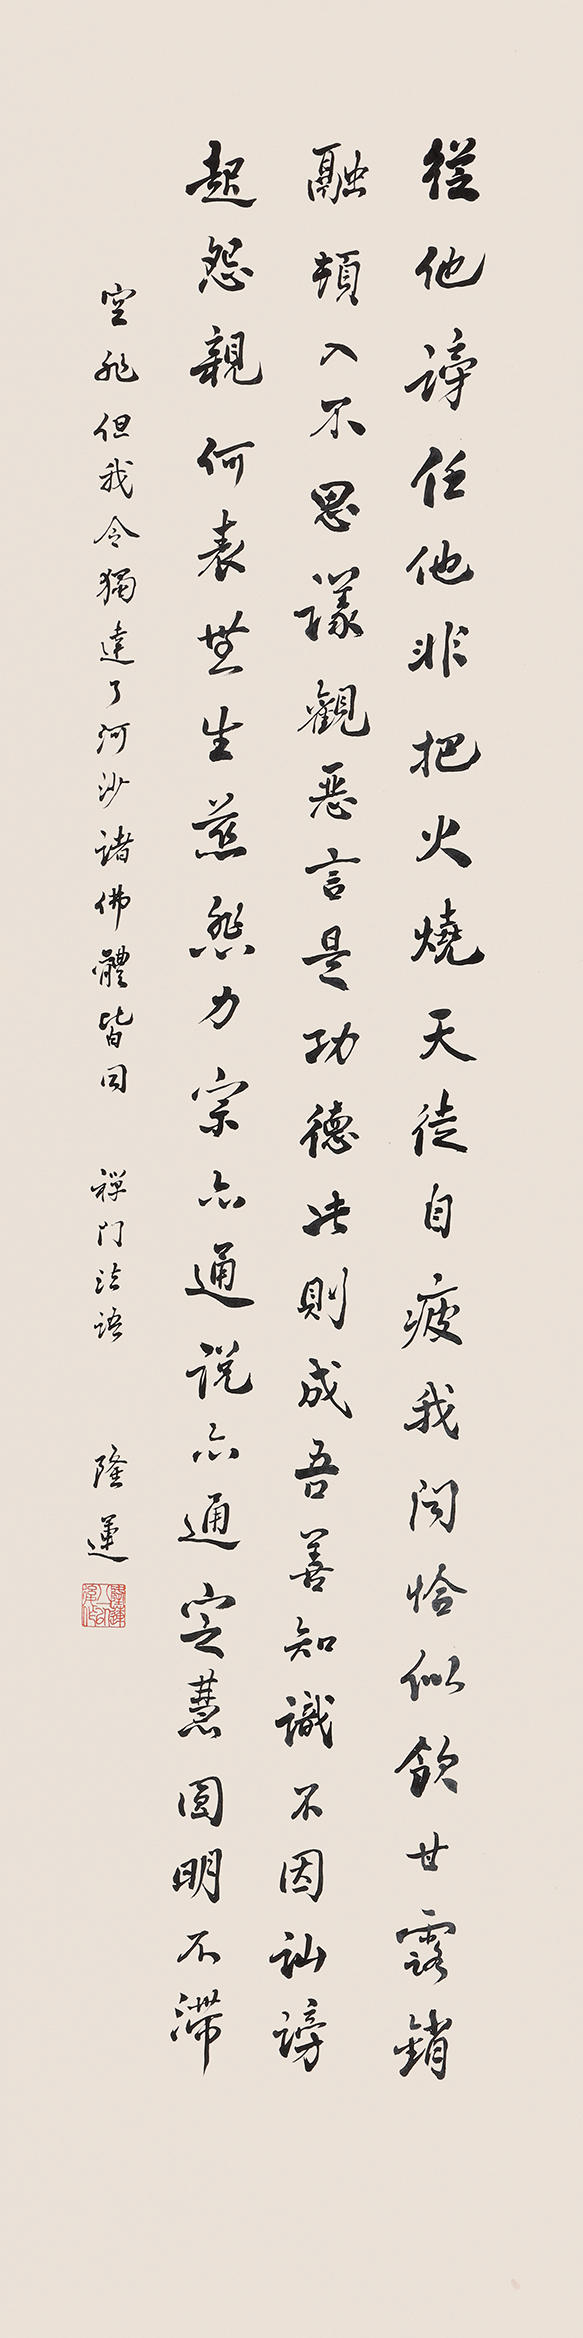 從他謗任他非把火燒天徒自疲我聞恰似飲甘露銷
融頓入不思議觀惡言是功德此則成吾善知識不因訕謗
起怨親何表無生慈忍力宗亦通説亦通定慧圓明不滯
空非但我今獨達了河沙諸佛體皆同 禪门法語 隆蓮